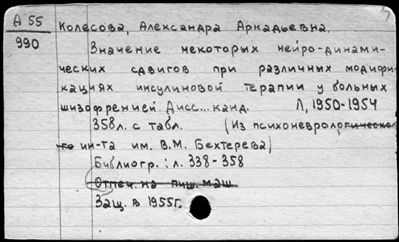 А 55
990
Колесова, Александра Аркадьевна.
Значение некоторых нейро-динами-
ческих сдвигов при различных модифи-
кациях инсулиновой терапии у больных
шизофренией. Дисс... канд. Л, 1950-1954
358л. с табл. (Из психоневрологическо-
го ин-та им. В.М. Бехтерева)
Библиогр.: л. 338-358
Отпеч. на пиш. маш.
Защ. в 1955г.